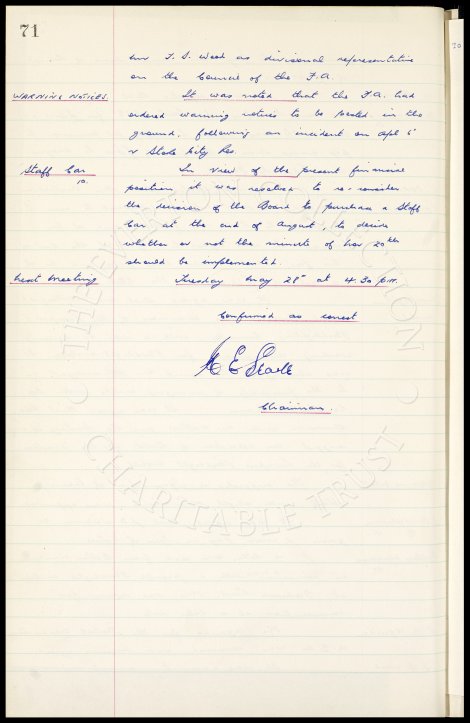 71
Mr T. S. Wood as divisional representative
on the Council of the F.A.
WARNING NOTICES. It was noted that the F.A. had
ordered warning notices to be posted in the
ground, following an incident on Apl 6th
v Stoke City Res.
Staff Car In view of the present financial
10.
position it was resolved to re-consider
the decision of the Board to purchase a Staff
Car, at the end of August, to decide
whether or not the minute of Nov 20th
should be implemented.
Next Meeting Tuesday May 28th at 4.30 p.m.
Confirmed as correct
Chairman.
THE COLLECTION
CHARITABLE TRUST